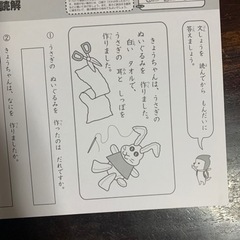 読解
文しょうを 読んでから もんだいに
答えましょう。
きょうちゃんは、うさぎの
ぬいぐるみを 作りました。
白い タオルで、
うさぎの 耳と しっぽを
作りました。
① うさぎの ぬいぐるみを 作ったのは だれですか。
② きょうちゃんは、なにを 作りましたか。